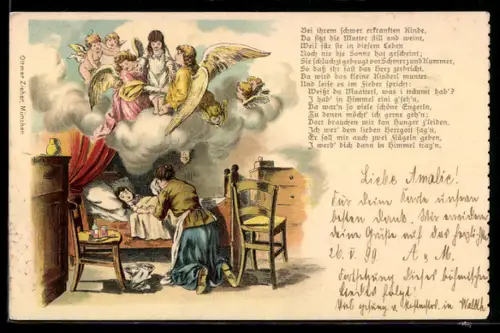 Bei ihrem schwer erkrankten Kinde,
Da sitzt die Mutter still und weint,
Weil für sie in diesem Leben
Noch nie die Sonne hat gescheint;
Sie schluchzt gebeugt vor Schmerz und Kummer,
So daß ihr fast das Herz zerbricht.
Da wird das kleine Kinderl munter
Und leise es im Fieber spricht:
Weißt du Muatterl, was i träumt hab'?
I hab' in Himmel eini g'seh'n,
Da war'n so viele schöne Engerln,
Zu denen möcht' ich gerne geh'n;
Dort brauchen wir kan Hunger z'leiden.
Ich wer' dem lieben Herrgott sag'n,
Er soll mir auch zwei Flügeln geben,
I werd' dich dann in Himmel trag'n.
Ottmar Zieher, München
Liebe Amalie!
Für deine Karte unsern
besten Dank. Wir erwidern
deine Grüße auf das
26. V. 99. A & M.
Fortsetzung dieses
Liedes folgt!
in